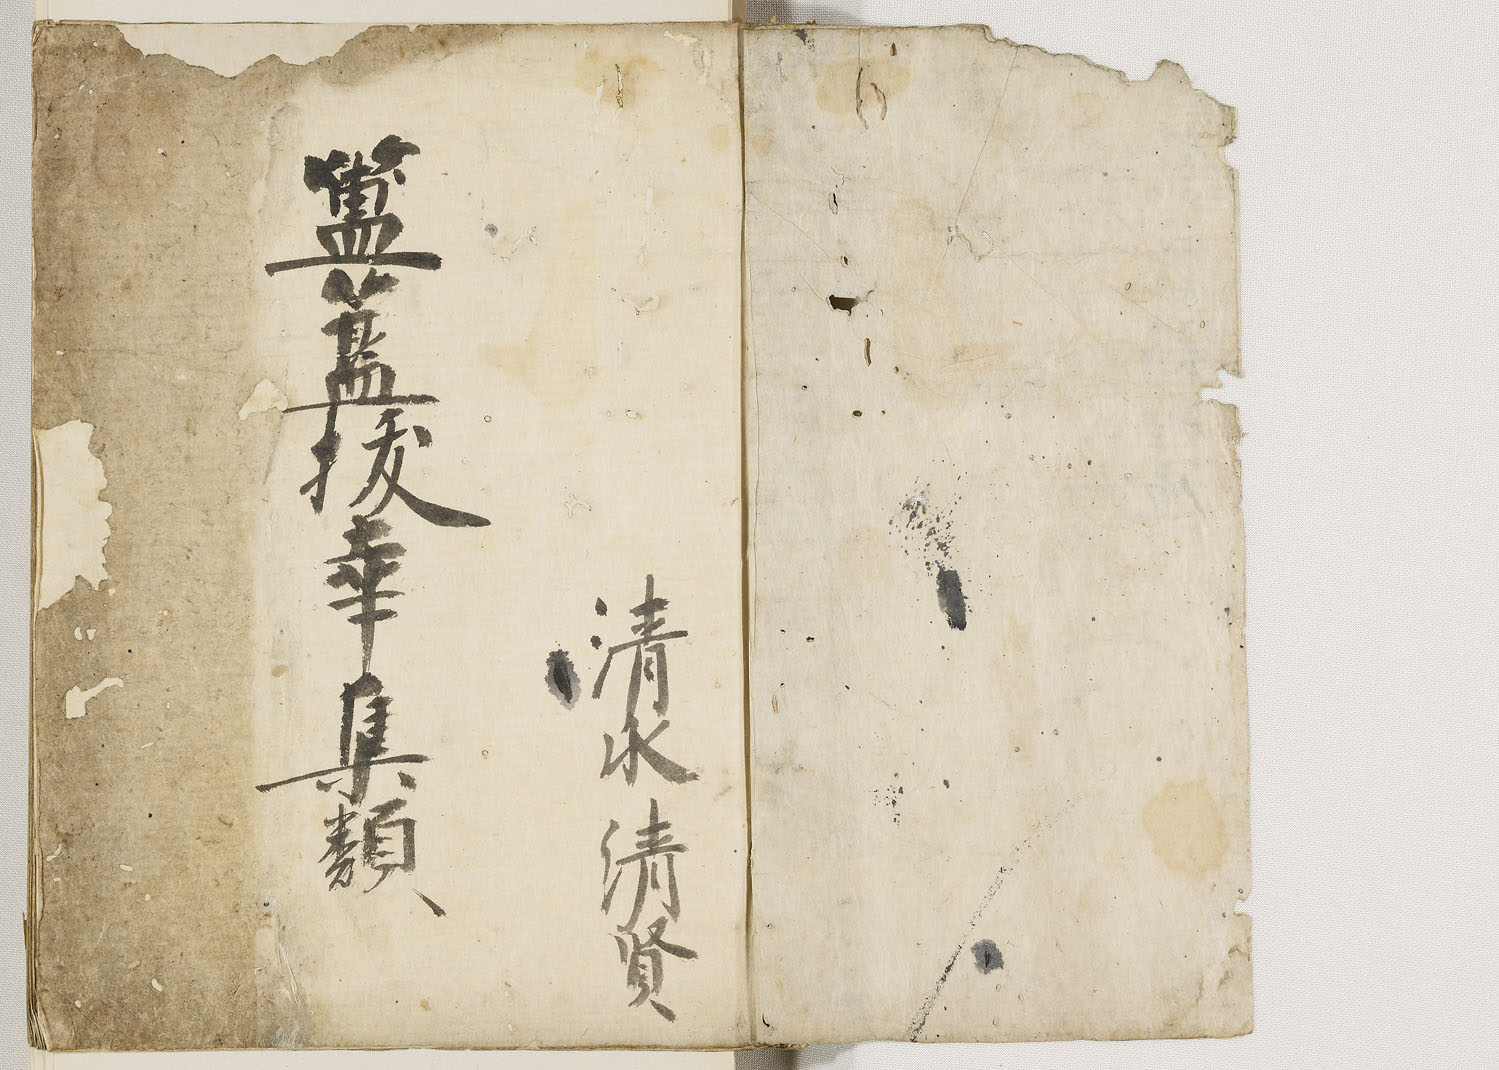 清水清賢
簠簋抜萃集類